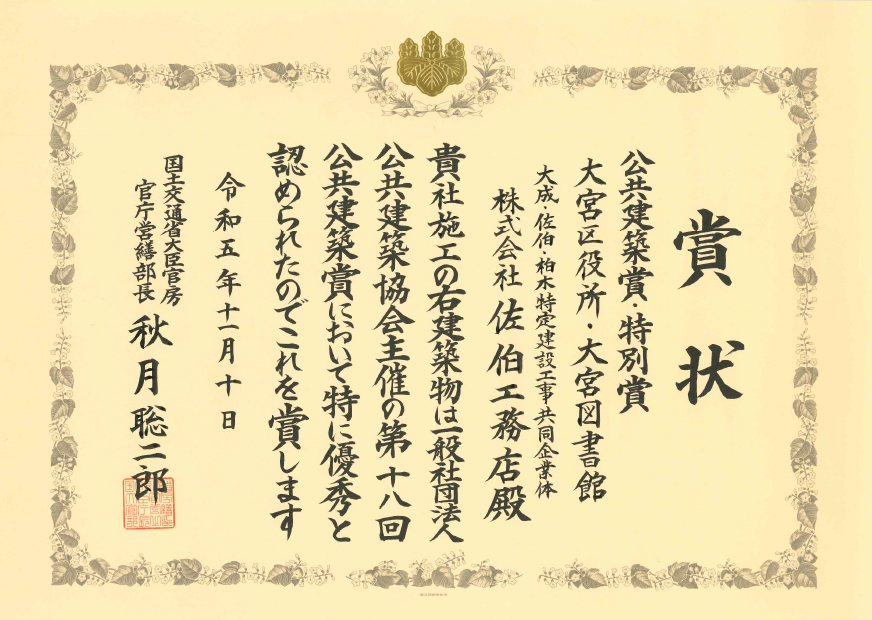 賞状
公共建築賞・特別賞
大宮区役所・大宮図書館
大成・佐伯・柏木特定建設工事共同企業体
株式会社 佐伯工務店殿
貴社施工の右建築物は一般社団法人
公共建築協会主催の第十八回
公共建築賞において特に優秀と
認められたのでこれを賞します
令和五年十一月十日
国土交通省大臣官房
官庁営繕部長 秋月聡二郎